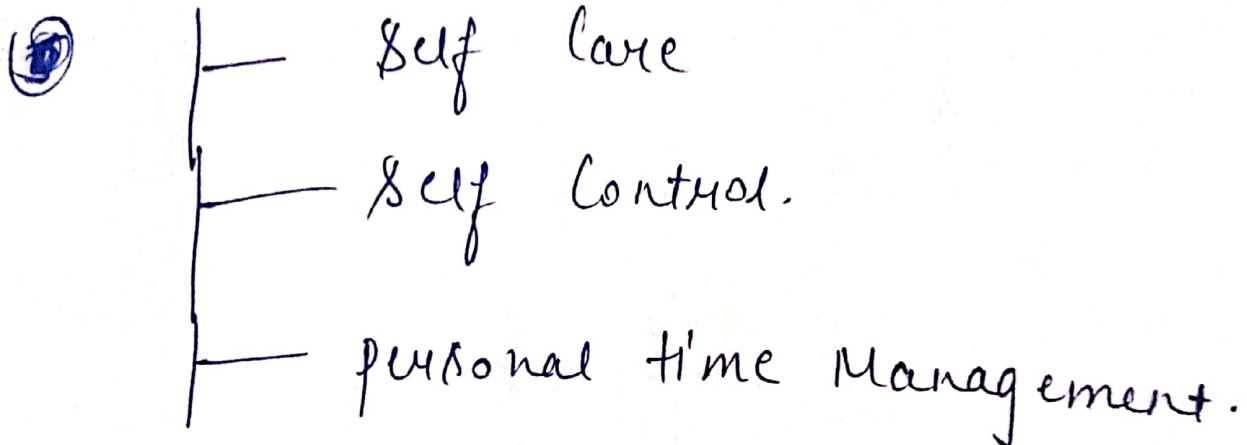 Self Care
Self Control.
personal time Management.